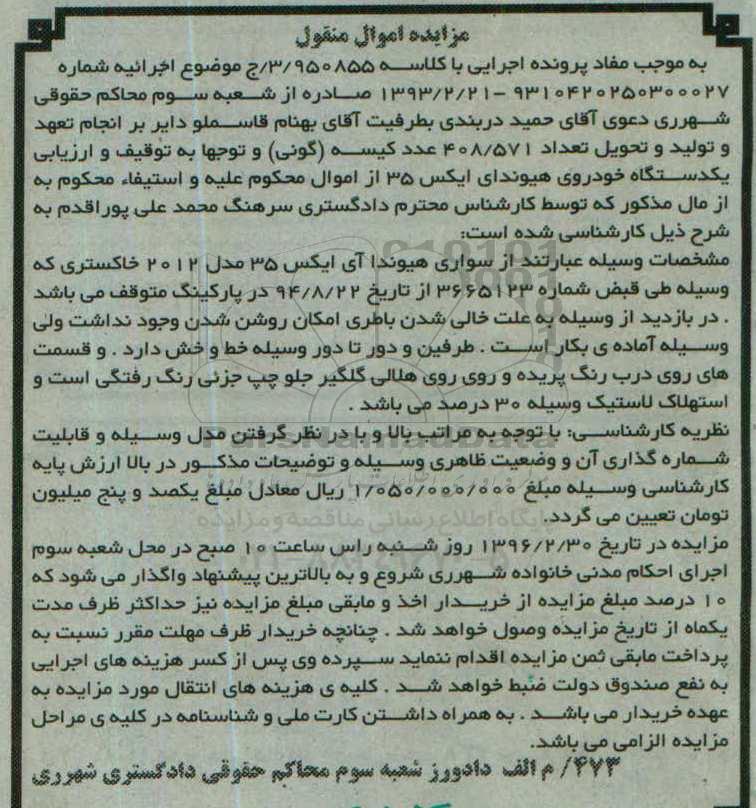 مزایده اموال منقول
به موجب مفاد پرونده اجرایی با کلاسه ۳/۹۵۰۸۵۵/ج موضوع اجرائیه شماره
۹۳۱۰۴۲۰۲۵۰۳۰۰۰۲۷ -۱۳۹۳/۲/۲۱ صادره از شعبه سوم محاکم حقوقی
شهرری دعوی آقای حمید دربندی بطرفیت آقای بهنام قاسملو دایر بر انجام تعهد
و تولید و تحویل تعداد ۴۰۸/۵۷۱ عدد کیسه (گونی) و توجها به توقیف و ارزیابی
یکدستگاه خودروی هیوندای ایکس ۳۵ از اموال محکوم علیه و استیفاء محکوم به
از مال مذکور که توسط کارشناس محترم دادگستری سرهنگ محمد علی پوراقدم به
شرح ذیل کارشناسی شده است:
مشخصات وسیله عبارتند از سواری هیوندا آی ایکس ۳۵ مدل ۲۰۱۲ خاکستری که
وسیله طی قبض شماره ۳۶۶۵۱۲۳ از تاریخ ۹۴/۸/۲۲ در پارکینگ متوقف می باشد
. در بازدید از وسیله به علت خالی شدن باطری امکان روشن شدن وجود نداشت ولی
وسیله آماده ی بکار است . طرفین و دور تا دور وسیله خط و خش دارد . و قسمت
های روی درب رنگ پریده و روی روی هلالی گلگیر جلو چپ جزئی رنگ رفتگی است و
استهلاک لاستیک وسیله ۳۰ درصد می باشد .
نظریه کارشناسی: با توجه به مراتب بالا و با در نظر گرفتن مدل وسیله و قابلیت
شماره گذاری آن و وضعیت ظاهری وسیله و توضیحات مذکور در بالا ارزش پایه
کارشناسی وسیله مبلغ ۱/۰۵۰/۰۰۰/۰۰۰ ریال معادل مبلغ یکصد و پنج میلیون
تومان تعیین می گردد.
مزایده در تاریخ ۱۳۹۶/۲/۳۰ روز شنبه راس ساعت ۱۰ صبح در محل شعبه سوم
اجرای احکام مدنی خانواده شهرری شروع و به بالاترین پیشنهاد واگذار می شود که
۱۰ درصد مبلغ مزایده از خریدار اخذ و مابقی مبلغ مزایده نیز حداکثر ظرف مدت
یکماه از تاریخ مزایده وصول خواهد شد . چنانچه خریدار ظرف مهلت مقرر نسبت به
پرداخت مابقی ثمن مزایده اقدام ننماید سپرده وی پس از کسر هزینه های اجرایی
به نفع صندوق دولت ضبط خواهد شد . کلیه ی هزینه های انتقال مورد مزایده به
عهده خریدار می باشد . به همراه داشتن کارت ملی و شناسنامه در کلیه ی مراحل
مزایده الزامی می باشد.
۴۷۳/ م الف دادورز شعبه سوم محاکم حقوقی دادگستری شهرری